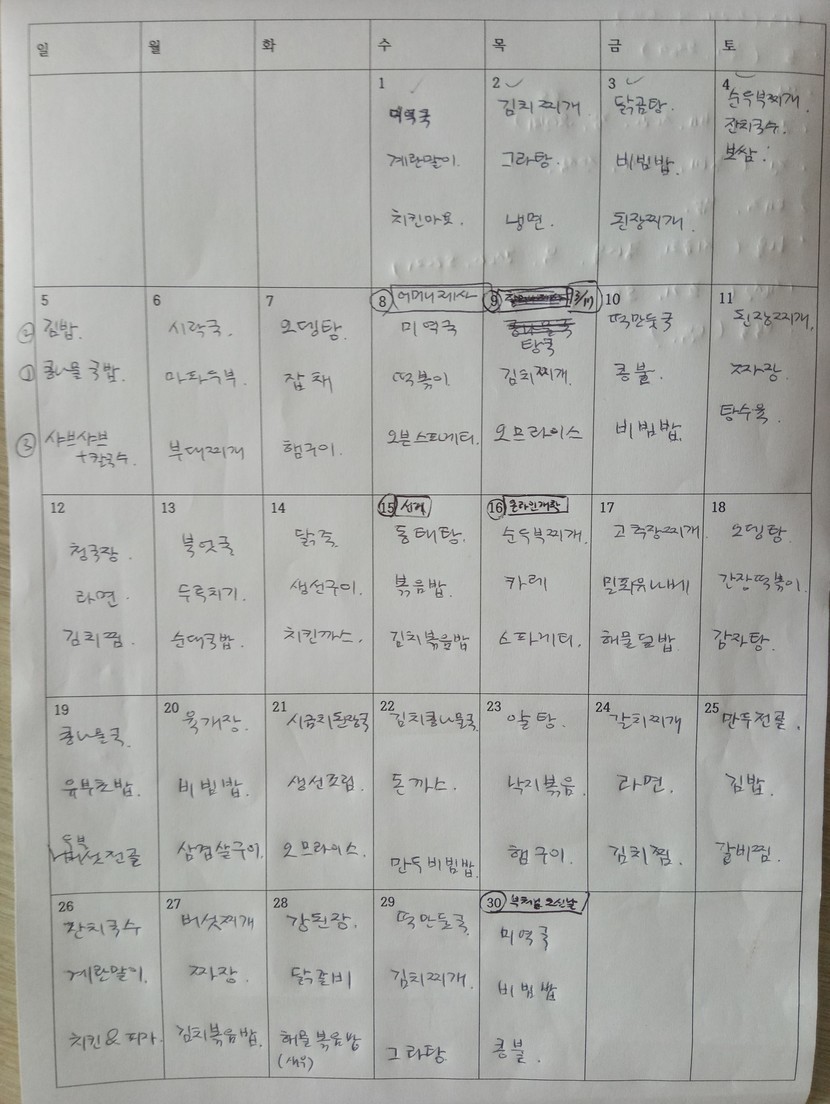 일 월 화 수 목 금 토
1
미역국
계란말이.
치킨마요.
2
김치찌개
그라탕.
냉면.
3
닭곰탕.
비빔밥.
된장찌개.
4
순두부찌개.
잔치국수.
보쌈.
5
② 김밥.
① 콩나물국밥.
③ 샤브샤브
+칼국수.
6
시락국.
마파두부.
부대찌개
7
오뎅탕.
잡채
햄구이.
8 어머니제사
미역국
떡볶이
오븐스파게티.
9
탕국
김치찌개.
오므라이스
10
떡만둣국
콩불.
비빔밥.
11
된장찌개.
짜장.
탕수육.
12
청국장.
라면.
김치찜.
13
북엇국
두루치기.
순대국밥.
14
닭죽.
생선구이.
치킨까스.
15 선거
동태탕.
볶음밥.
김치볶음밥
16 온라인개학
순두부찌개.
카레
스파게티.
17
고추장찌개
밀푀유나베
해물덮밥.
18
오뎅탕.
간장떡볶이.
감자탕.
19
콩나물국.
유부초밥.
두부
버섯전골
20
육개장.
비빔밥.
삼겹살구이.
21
시금치된장국
생선조림.
오므라이스.
22
김치콩나물국.
돈까스.
만두비빔밥.
23
알탕.
낙지볶음.
햄구이.
24
갈치찌개
라면.
김치찜.
25
만두전골.
김밥.
갈비찜.
26
잔치국수
계란말이.
치킨&피자.
27
버섯찌개
짜장.
김치볶음밥.
28
강된장.
닭갈비
해물볶음밥
(새우)
29
떡만둣국.
김치찌개.
그라탕.
30 부처님오신날
미역국
비빔밥
콩불.